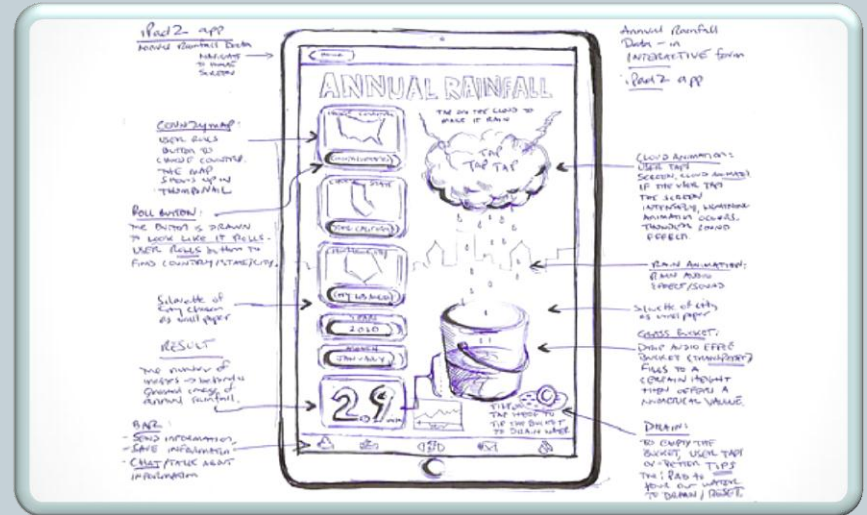 iPad2 app
Annual Rainfall Data
NAVIGATE
TO HOME
SCREEN
COUNTRY MAP:
USER ROLLS
BUTTON TO
CHOOSE COUNTRY.
THE MAP
SHOWS UP IN
THUMBNAIL
ROLL BUTTON:
THE BUTTON IS DRAWN
TO LOOK LIKE IT ROLLS.
USER ROLLS BUTTON TO
FIND COUNTRY/STATE/CITY.
Silouette of
City chosen
as wallpaper
RESULT
The number of
inches
annual rainfall.
BAR:
- SEND INFORMATION
- SAVE INFORMATION
- CHAT/TALK ABOUT
INFORMATION
ANNUAL RAINFALL
TAP ON THE CLOUD TO
MAKE IT RAIN
TAP
TAP TAP
STATE
YEAR
2010
MONTH
JANUARY
29
TAP HERE TO
TIP THE BUCKET
TO DRAIN WATER
Annual Rainfall
Data - in
INTERACTIVE form
iPad2 app
CLOUD ANIMATION:
USER TAPS
SCREEN, CLOUD ANIMATES
IF THE USER TAP
THE SCREEN
INTENSELY, LIGHTNING
ANIMATION OCCURS.
THUNDER SOUND
EFFECT.
RAIN ANIMATION:
RAIN AUDIO
EFFECT/SOUND
Silouette of city
as wallpaper
GLASS BUCKET:
DRIP AUDIO EFFE
BUCKET (TRANSPARENT)
FILLS TO A
CERTAIN HEIGHT
THEN OFFERS A
NUMERICAL VALUE.
DRAIN:
TO EMPTY THE
BUCKET, USER TAPS
OR BETTER TIPS
THE iPAD TO
POUR OUT WATER
TO DRAIN/RESET.